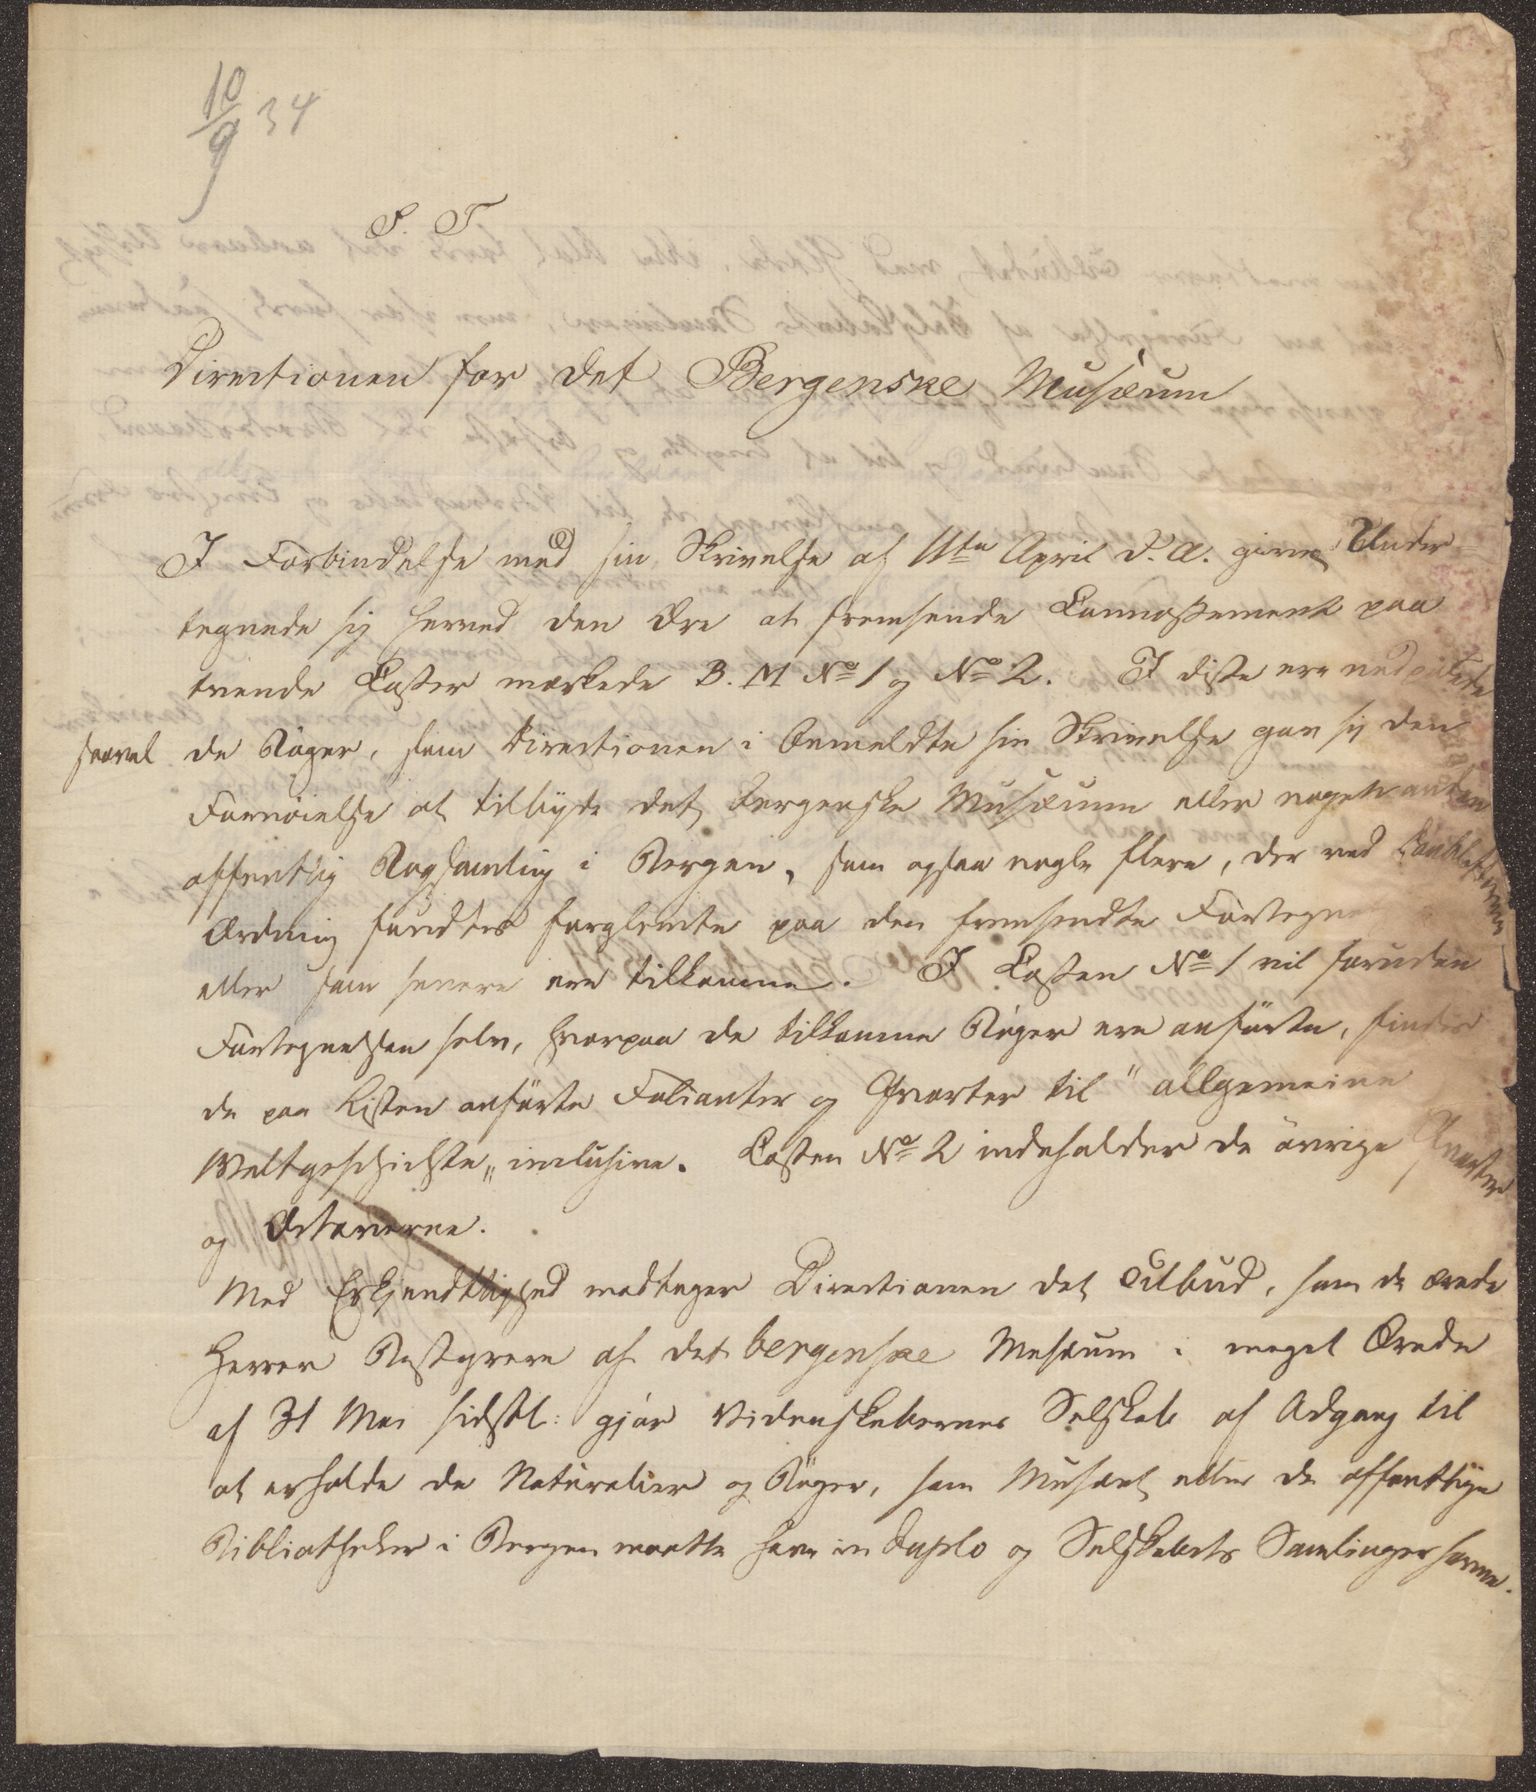 10/9 34
P. T.
Directionen for det Bergenske Musæum
I Forbindelse med sin Skrivelse af 11te April d. A. giver Under-
tegnede sig herved den Ære at fremsende Connossement paa
tvende Casser mærkede B. M No 1 og No 2. I disse ere nedpakkede
saavel de Bøger, som Directionen i bemeldte sin Skrivelse gav sig den
Fornøielse at tilbyde det bergenske Musæum eller nogen anden
offentlig Bogsamling i Bergen, som ogsaa nogle flere, der ved Doubletternes
Ordning fandtes forglemte paa den fremsendte
eller som senere ere tilkomne. I Cassen No 1 vil foruden
Fortegnelsen selv, hvorpaa de tilkomne Bøger ere anførte, findes
de paa Listen anførte Folianter og Qvarter til "allgemeine
Weltgeschichte" inclusive. Cassen No 2 indeholder de øvrige Qvarter
og Octaverne.
Med Erkjendtlighed modtager Directionen det Tilbud, som de ærede
Herrer Bestyrere af det bergenske Musæum i meget Ærede
af 31 Mai sidstl: gjør Videnskabernes Selskab af Adgang til
at erholde de Naturalier og Bøger, som Musæet eller de offentlige
Bibliotheker i Bergen maatte have in duplo og Selskabets Samlinger savne.